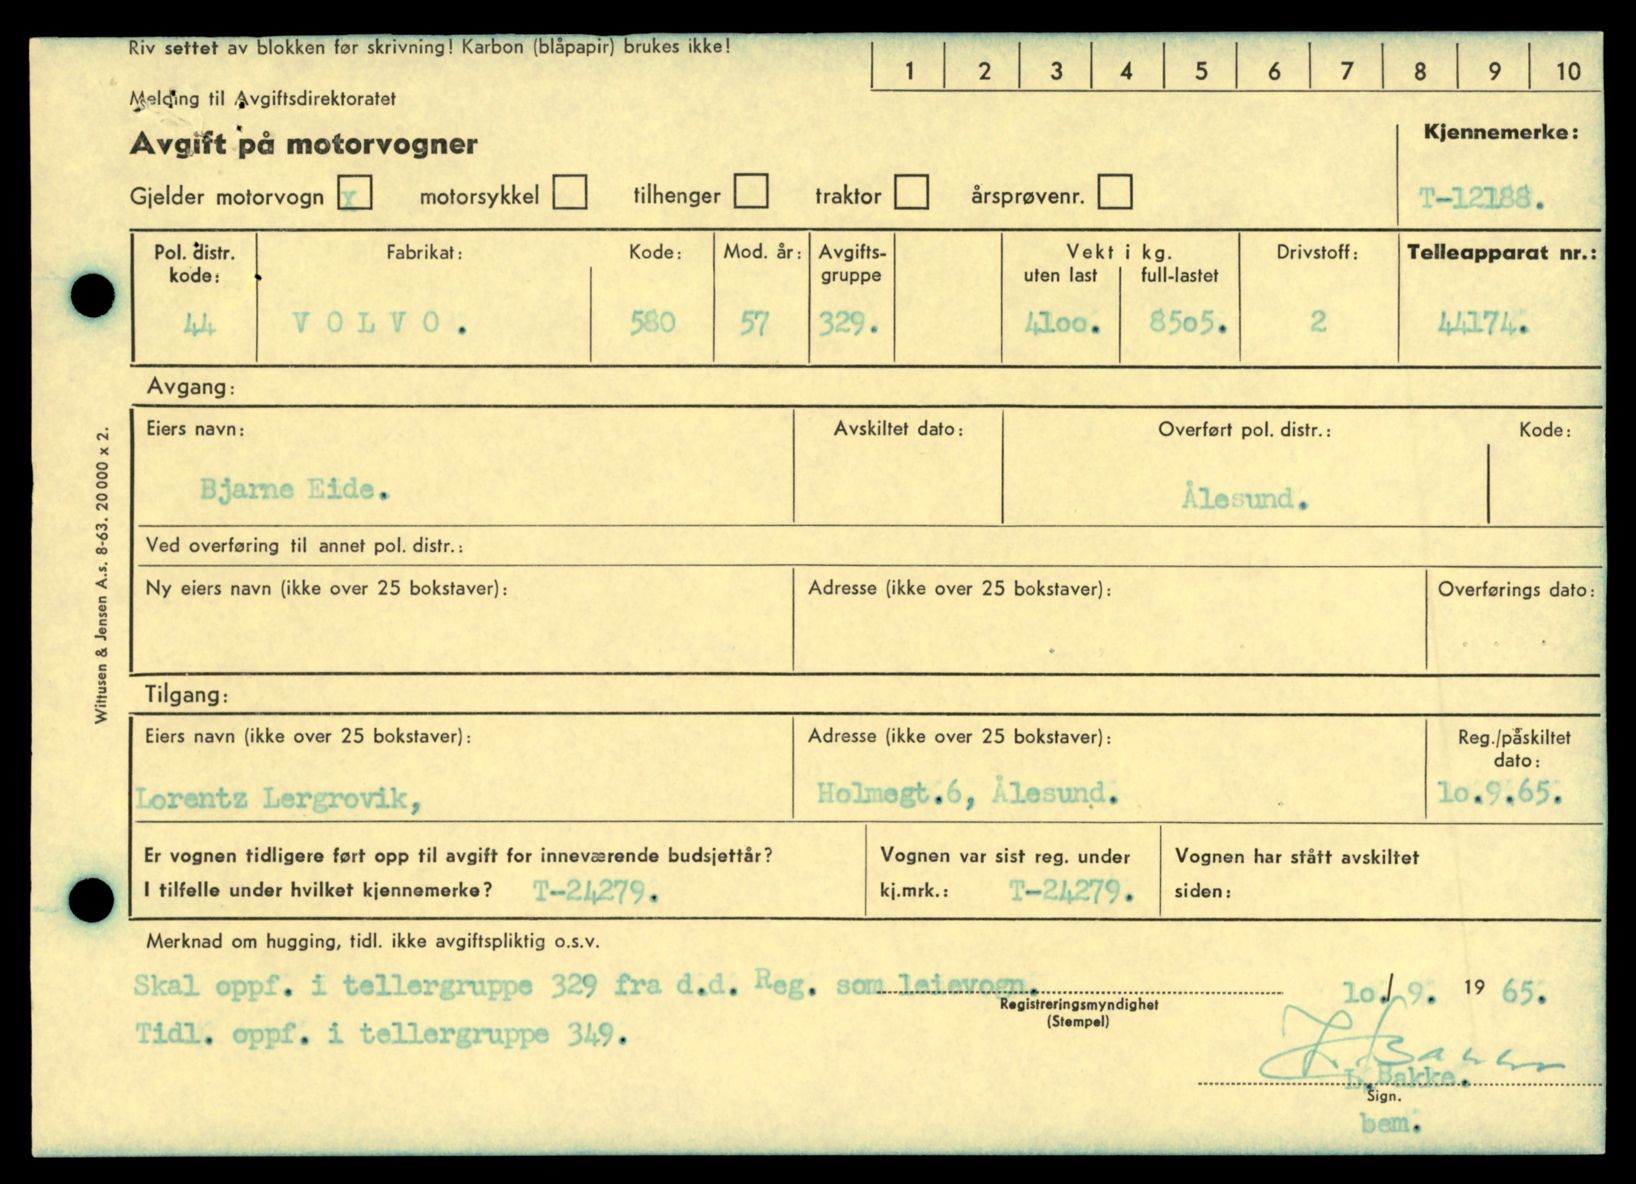 Riv settet av blokken før skrivning! Karbon (blåpapir) brukes ikke!
1 2 3 4 5 6 7 8 9 10
Melding til Avgiftsdirektoratet
Avgift på motorvogner
Kjennemerke:
Gjelder motorvogn x motorsykkel tilhenger traktor årsprøvenr.
T-12188.
Pol. distr. kode:
Fabrikat:
Kode:
Mod. år:
Avgifts-gruppe
Vekt i kg.
uten last
full-lastet
Drivstoff:
Telleapparat nr.:
44 VOLVO. 580 57 329. 4100. 8505. 2 44174.
Avgang:
Eiers navn:
Avskiltet dato:
Overført pol. distr.:
Kode:
Bjarne Eide.
Ålesund.
Ved overføring til annet pol. distr.:
Ny eiers navn (ikke over 25 bokstaver):
Adresse (ikke over 25 bokstaver):
Overførings dato:
Tilgang:
Eiers navn (ikke over 25 bokstaver):
Adresse (ikke over 25 bokstaver):
Reg./påskiltet
dato:
Lorentz Lergrovik,
Holmegt.6, Ålesund.
10.9.65.
Er vognen tidligere ført opp til avgift for inneværende budsjettår?
I tilfelle under hvilket kjennemerke? T-24279.
Vognen var sist reg. under
kj.mrk.: T-24279.
Vognen har stått avskiltet
siden:
Merknad om hugging, tidl. ikke avgiftspliktig o.s.v.
Skal oppf. i tellergruppe 329 fra d.d. Reg. som leievogn.
Registreringsmyndighet
(Stempel)
10./9. 1965.
Tidl. oppf. i tellergruppe 349.
L. Bakke.
Sign.
bem.
Wittusen & Jensen A.s. 8-63. 20 000 x 2.